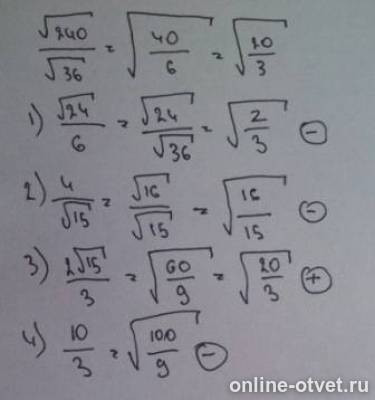 √240/√36 = √(40/6) = √(20/3)
1) √24/6 = √24/√36 = √(2/3) ⊖
2) 4/√15 = √16/√15 = √(16/15) ⊖
3) 2√15/3 = √(60/9) = √(20/3) ⊕
4) 10/3 = √(100/9) ⊖
online-otvet.ru